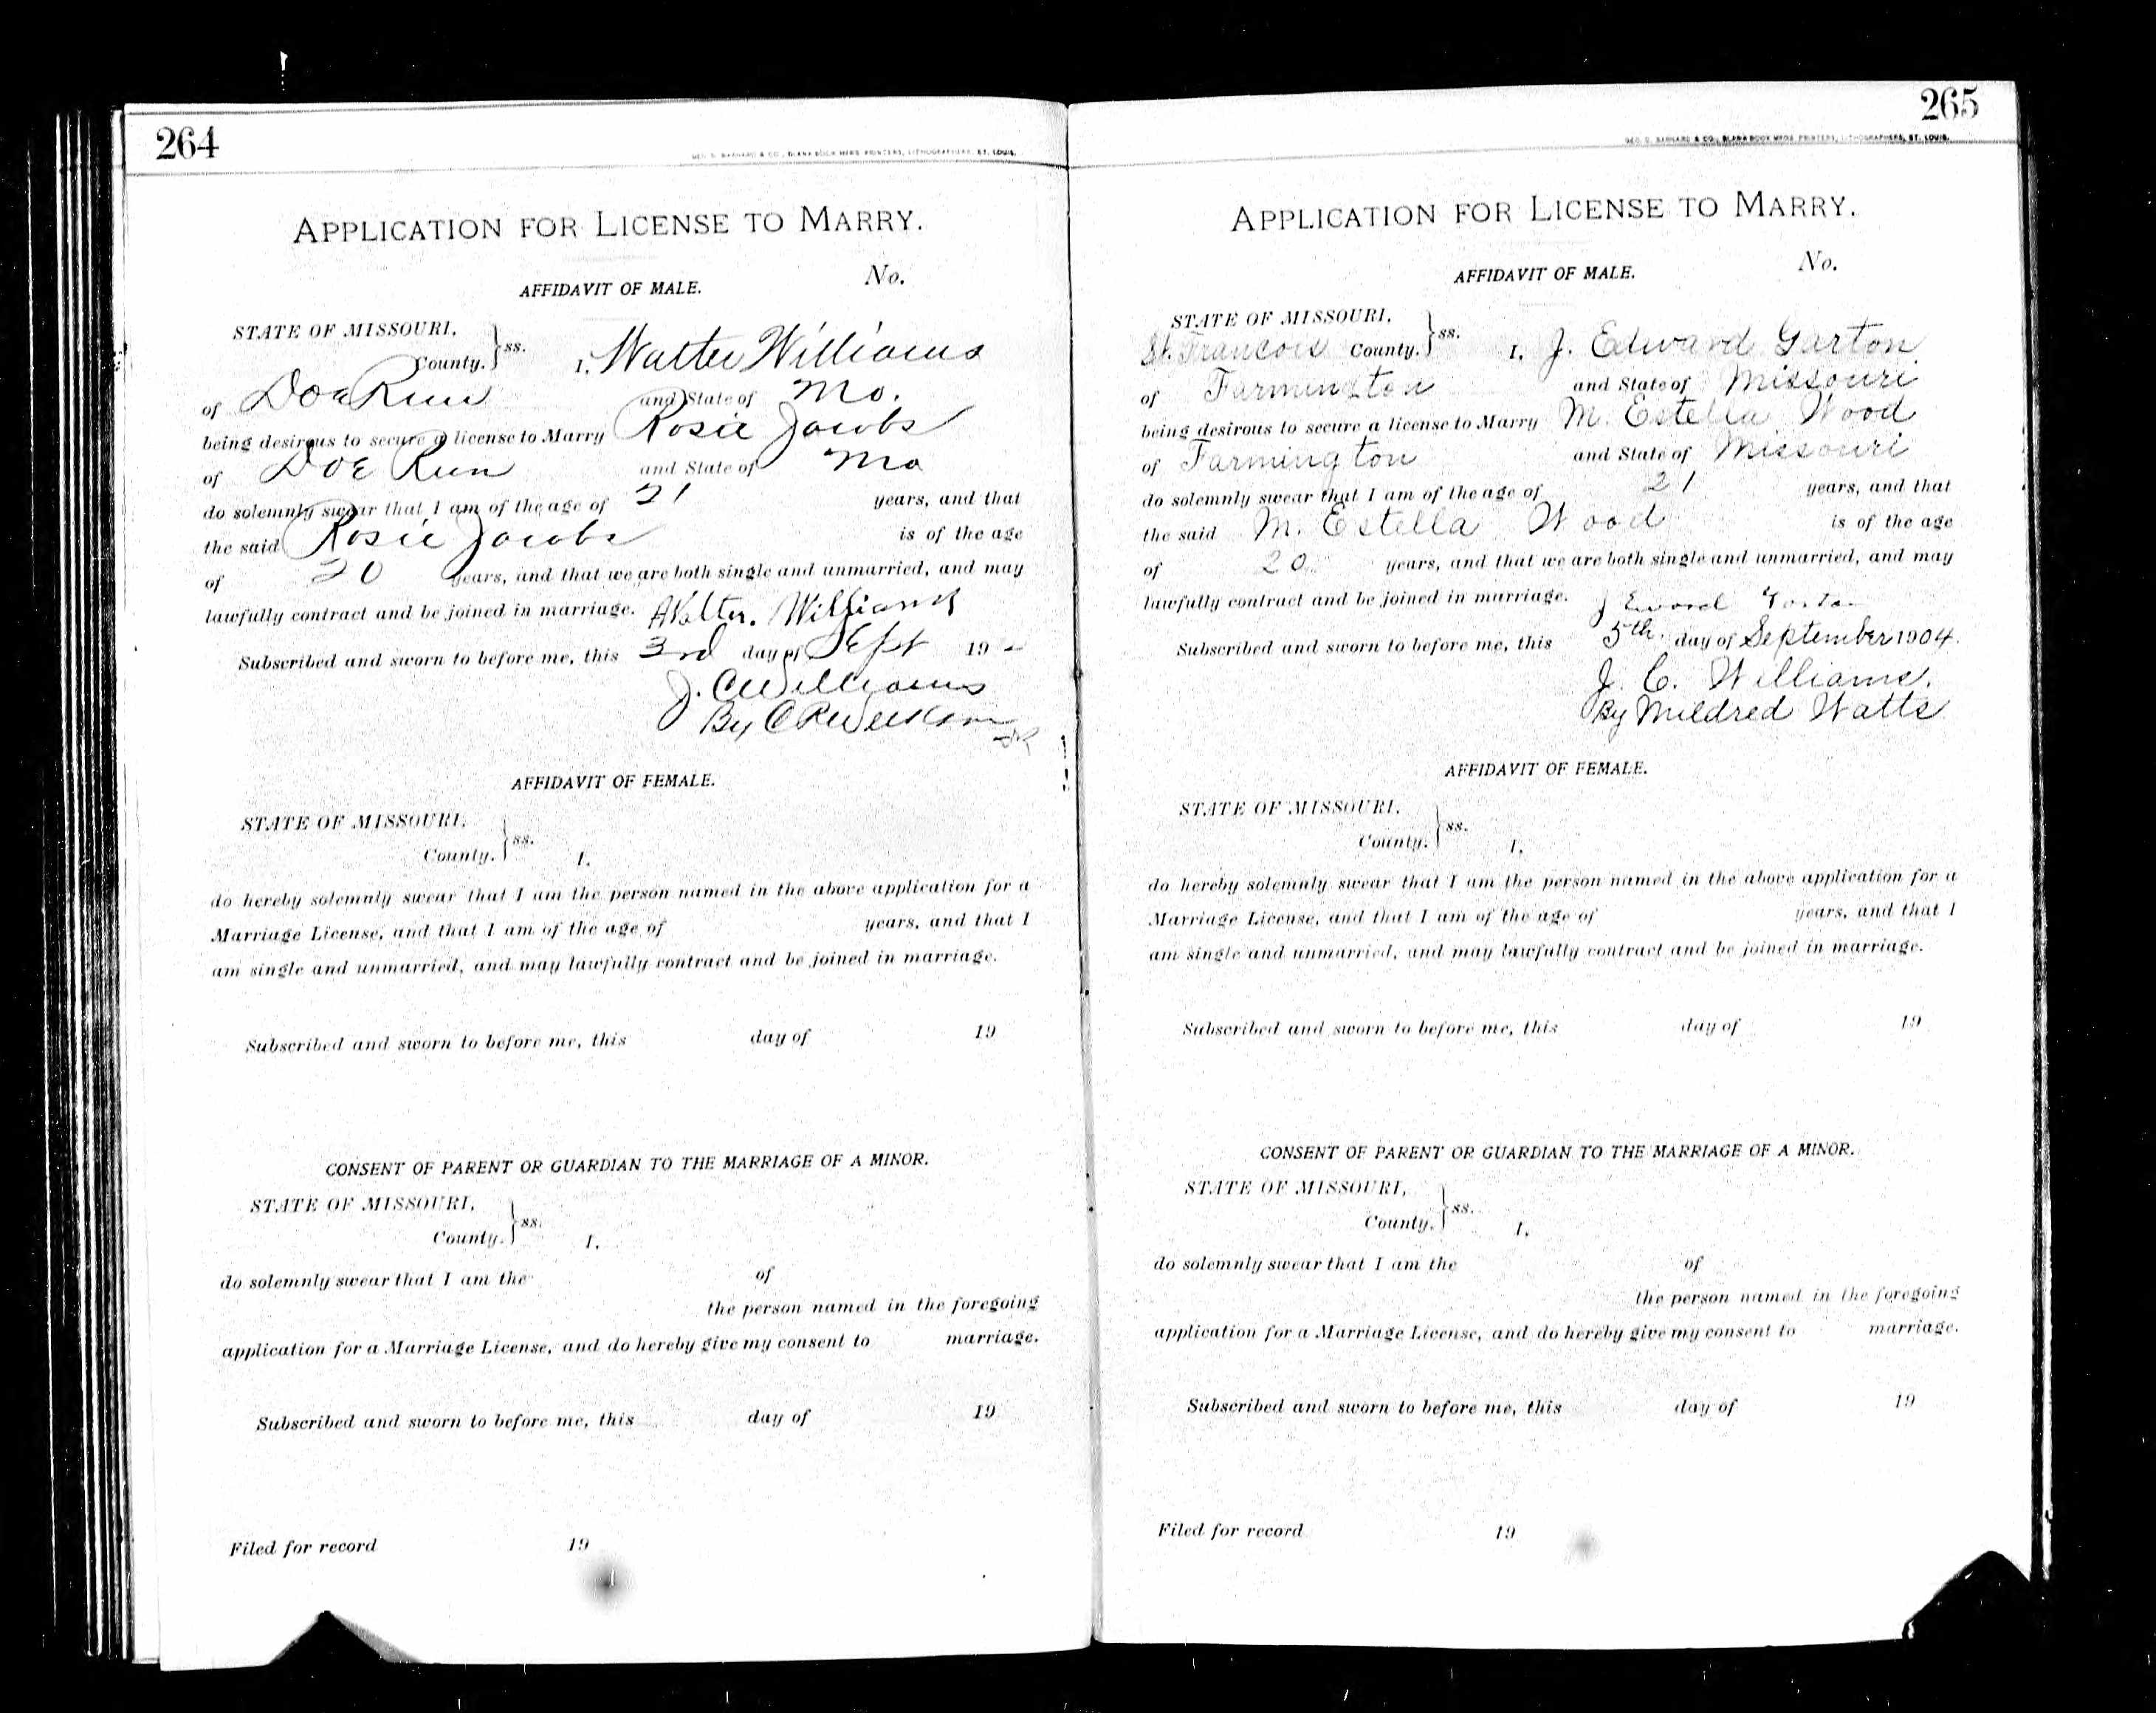 264
GEO. D. BARNARD & CO., BLANK BOOK MFRS. PRINTERS, LITHOGRAPHERS, ST. LOUIS.
APPLICATION FOR LICENSE TO MARRY.
No.
AFFIDAVIT OF MALE.
STATE OF MISSOURI,
County. } ss. I, Walter Williams
of Doe Run and State of Mo.
being desirous to secure a license to Marry Rosie Jacobs
of Doe Run and State of Mo
do solemnly swear that I am of the age of 21 years, and that
the said Rosie Jacobs is of the age
of 20 years, and that we are both single and unmarried, and may
lawfully contract and be joined in marriage. Walter. Williams
Subscribed and sworn to before me, this 3rd day of Sept 19
J. C Williams
By C R
AFFIDAVIT OF FEMALE.
STATE OF MISSOURI,
County. } ss. I,
do hereby solemnly swear that I am the person named in the above application for a
Marriage License, and that I am of the age of years, and that I
am single and unmarried, and may lawfully contract and be joined in marriage.
Subscribed and sworn to before me, this day of 19
CONSENT OF PARENT OR GUARDIAN TO THE MARRIAGE OF A MINOR.
STATE OF MISSOURI,
County. } ss. I,
do solemnly swear that I am the of
the person named in the foregoing
application for a Marriage License, and do hereby give my consent to marriage.
Subscribed and sworn to before me, this day of 19
Filed for record 19
265
GEO. D. BARNARD & CO., BLANK BOOK MFRS. PRINTERS, LITHOGRAPHERS, ST. LOUIS.
APPLICATION FOR LICENSE TO MARRY.
No.
AFFIDAVIT OF MALE.
STATE OF MISSOURI,
St. Francois County. } ss. I, J. Edward Garton
of Farmington and State of Missouri
being desirous to secure a license to Marry M. Estella Wood
of Farmington and State of Missouri
do solemnly swear that I am of the age of 21 years, and that
the said M. Estella Wood is of the age
of 20 years, and that we are both single and unmarried, and may
lawfully contract and be joined in marriage. J Edward Garton
Subscribed and sworn to before me, this 5th. day of September 1904.
J. C. Williams.
By Mildred Watts
AFFIDAVIT OF FEMALE.
STATE OF MISSOURI,
County. } ss. I,
do hereby solemnly swear that I am the person named in the above application for a
Marriage License, and that I am of the age of years, and that I
am single and unmarried, and may lawfully contract and be joined in marriage.
Subscribed and sworn to before me, this day of 19
CONSENT OF PARENT OR GUARDIAN TO THE MARRIAGE OF A MINOR.
STATE OF MISSOURI,
County. } ss. I,
do solemnly swear that I am the of
the person named in the foregoing
application for a Marriage License, and do hereby give my consent to marriage.
Subscribed and sworn to before me, this day of 19
Filed for record 19